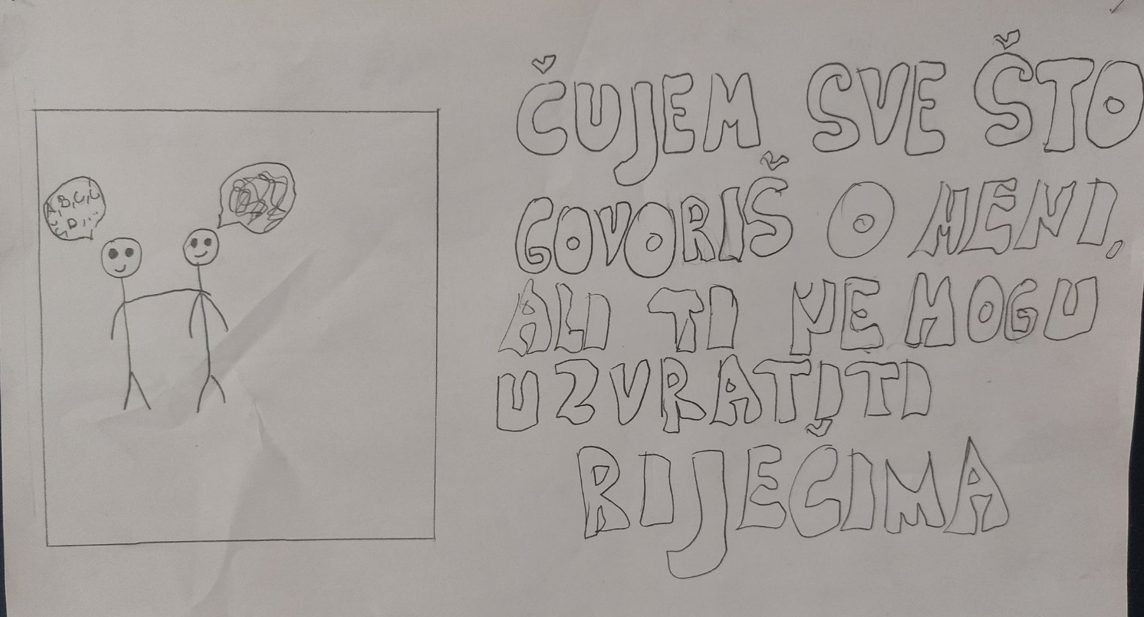 A, B, C, Č
Ć, D, ...
ČUJEM SVE ŠTO
GOVORIŠ O MENI,
ALI TI NE MOGU
UZVRATITI
RIJEČIMA